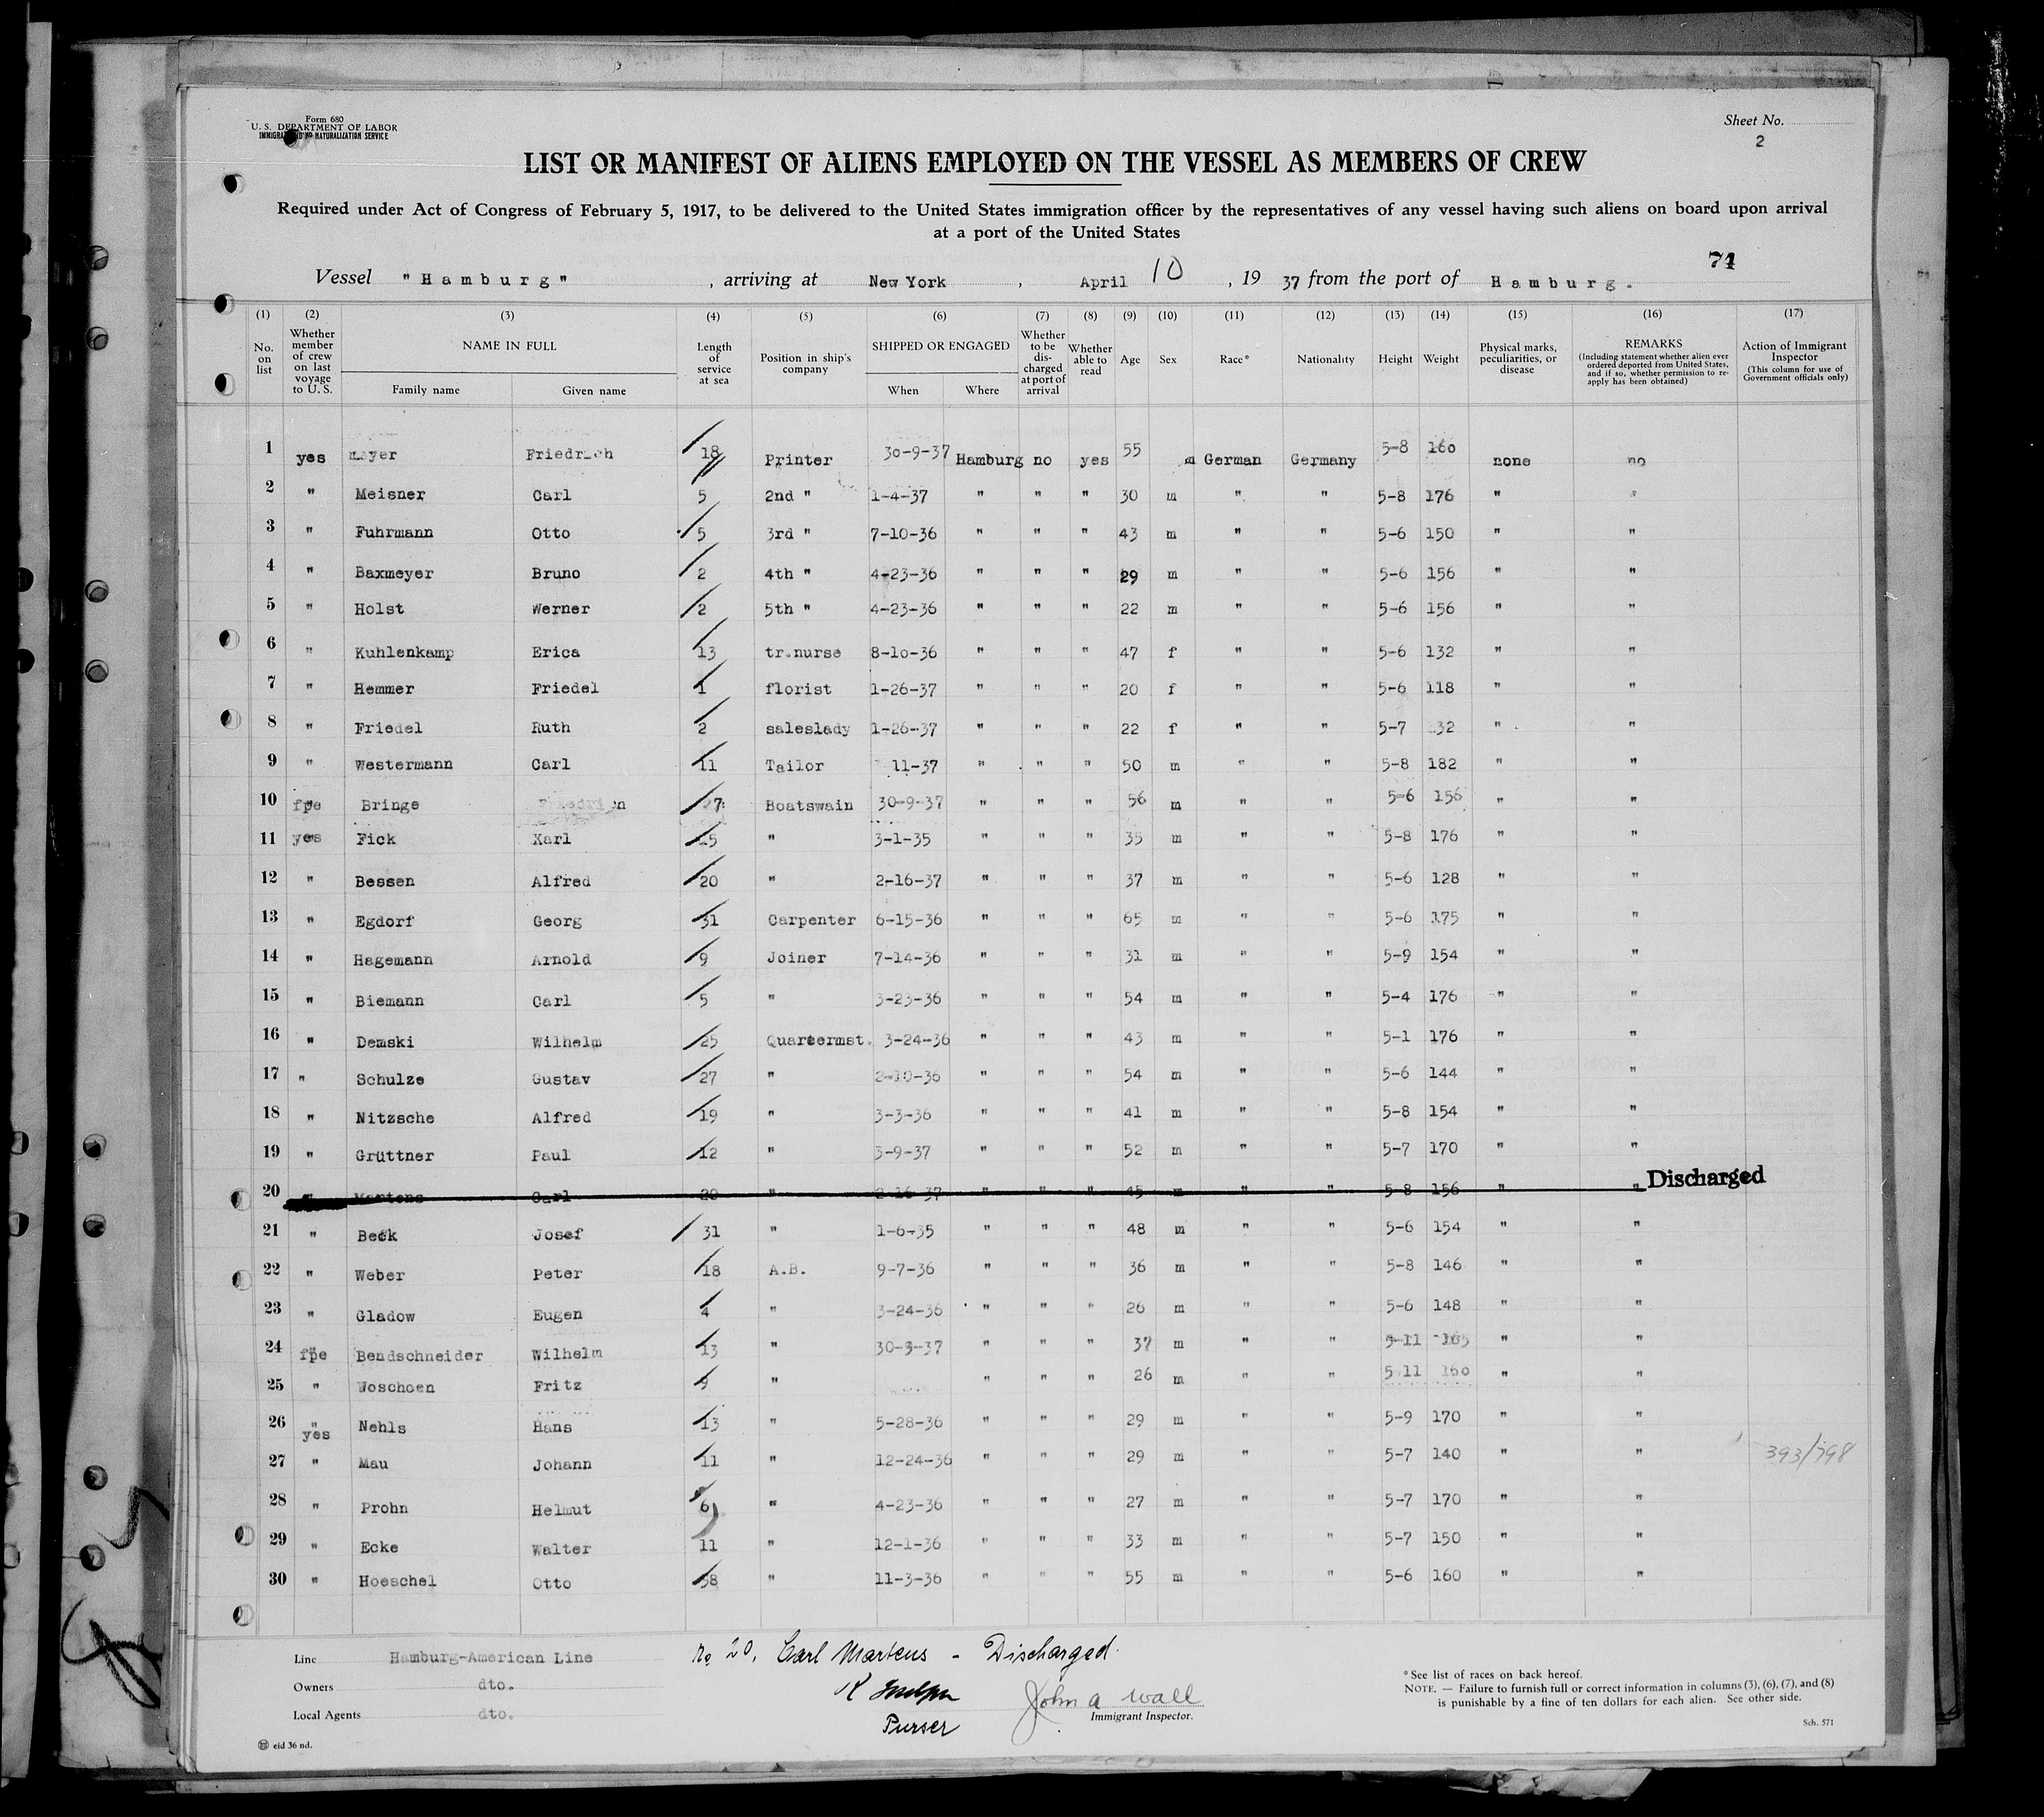 Form 680
U. S. DEPARTMENT OF LABOR
IMMIGRATION AND NATURALIZATION SERVICE
Sheet No.
2
LIST OR MANIFEST OF ALIENS EMPLOYED ON THE VESSEL AS MEMBERS OF CREW
Required under Act of Congress of February 5, 1917, to be delivered to the United States immigration officer by the representatives of any vessel having such aliens on board upon arrival
at a port of the United States
71
Vessel "Hamburg", arriving at New York, April 10, 1937 from the port of Hamburg.
(1) (2) (3) (4) (5) (6) (7) (8) (9) (10) (11) (12) (13) (14) (15) (16) (17)
No. on list
Whether member of crew on last voyage to U. S.
NAME IN FULL
Family name Given name
Length of service at sea
Position in ship's company
SHIPPED OR ENGAGED
When Where
Whether to be discharged at port of arrival
Whether able to read
Age
Sex
Race*
Nationality
Height
Weight
Physical marks, peculiarities, or disease
REMARKS
(Including statement whether alien ever ordered deported from United States, and if so, whether permission to reapply has been obtained)
Action of Immigrant Inspector
(This column for use of Government officials only)
1 yes Meyer Friedrich 18 Printer 30-9-37 Hamburg no yes 55 m German Germany 5-8 160 none no
2 " Meisner Carl 5 2nd " 1-4-37 " " " 30 m " " 5-8 176 " "
3 " Fuhrmann Otto 5 3rd " 7-10-36 " " " 43 m " " 5-6 150 " "
4 " Baxmeyer Bruno 2 4th " 4-23-36 " " " 29 m " " 5-6 156 " "
5 " Holst Werner 2 5th " 4-23-36 " " " 22 m " " 5-6 156 " "
6 " Kuhlenkamp Erica 13 tr.nurse 8-10-36 " " " 47 f " " 5-6 132 " "
7 " Hemmer Friedel 1 florist 1-26-37 " " " 20 f " " 5-6 118 " "
8 " Friedel Ruth 2 saleslady 1-26-37 " " " 22 f " " 5-7 32 " "
9 " Westermann Carl 11 Tailor 11-37 " " " 50 m " " 5-8 182 " "
10 fpe Bringe 27 Boatswain 30-9-37 " " " 56 m " " 5-6 156 " "
11 yes Fick Karl 25 " 3-1-35 " " " 35 m " " 5-8 176 " "
12 " Bessen Alfred 20 " 2-16-37 " " " 37 m " " 5-6 128 " "
13 " Egdorf Georg 31 Carpenter 6-15-36 " " " 65 m " " 5-6 175 " "
14 " Hagemann Arnold 9 Joiner 7-14-36 " " " 31 m " " 5-9 154 " "
15 " Biemann Carl 5 " 3-23-36 " " " 54 m " " 5-4 176 " "
16 " Demski Wilhelm 25 Quartermst. 3-24-36 " " " 43 m " " 5-1 176 " "
17 " Schulze Gustav 27 " 2-10-36 " " " 54 m " " 5-6 144 " "
18 " Nitzsche Alfred 19 " 3-3-36 " " " 41 m " " 5-8 154 " "
19 " Grüttner Paul 12 " 3-9-37 " " " 52 m " " 5-7 170 " "
20 " Martens Carl 20 " 2-16-37 " " " 45 m " " 5-8 156 " " Discharged
21 " Beck Josef 31 " 1-6-35 " " " 48 m " " 5-6 154 " "
22 " Weber Peter 18 A.B. 9-7-36 " " " 36 m " " 5-8 146 " "
23 " Gladow Eugen 4 " 3-24-36 " " " 26 m " " 5-6 148 " "
24 fpe Bendschneider Wilhelm 13 " 30-9-37 " " " 37 m " " 5-11 165 " "
25 " Woschoen Fritz 9 " " " " 26 m " " 5-11 160 " "
26 " yes Nehls Hans 13 " 5-28-36 " " " 29 m " " 5-9 170 " "
27 " Mau Johann 11 " 12-24-36 " " " 29 m " " 5-7 140 " " 393/798
28 " Prohn Helmut 6 " 4-23-36 " " " 27 m " " 5-7 170 " "
29 " Ecke Walter 11 " 12-1-36 " " " 33 m " " 5-7 150 " "
30 " Hoeschel Otto 38 " 11-3-36 " " " 55 m " " 5-6 160 " "
Line Hamburg-American Line
Owners dto.
Local Agents dto.
No 20, Carl Martens - Discharged.
Purser
John A Wall
Immigrant Inspector.
* See list of races on back hereof.
NOTE. — Failure to furnish full or correct information in columns (3), (6), (7), and (8)
is punishable by a fine of ten dollars for each alien. See other side.
Sch. 571
eid 36 nd.